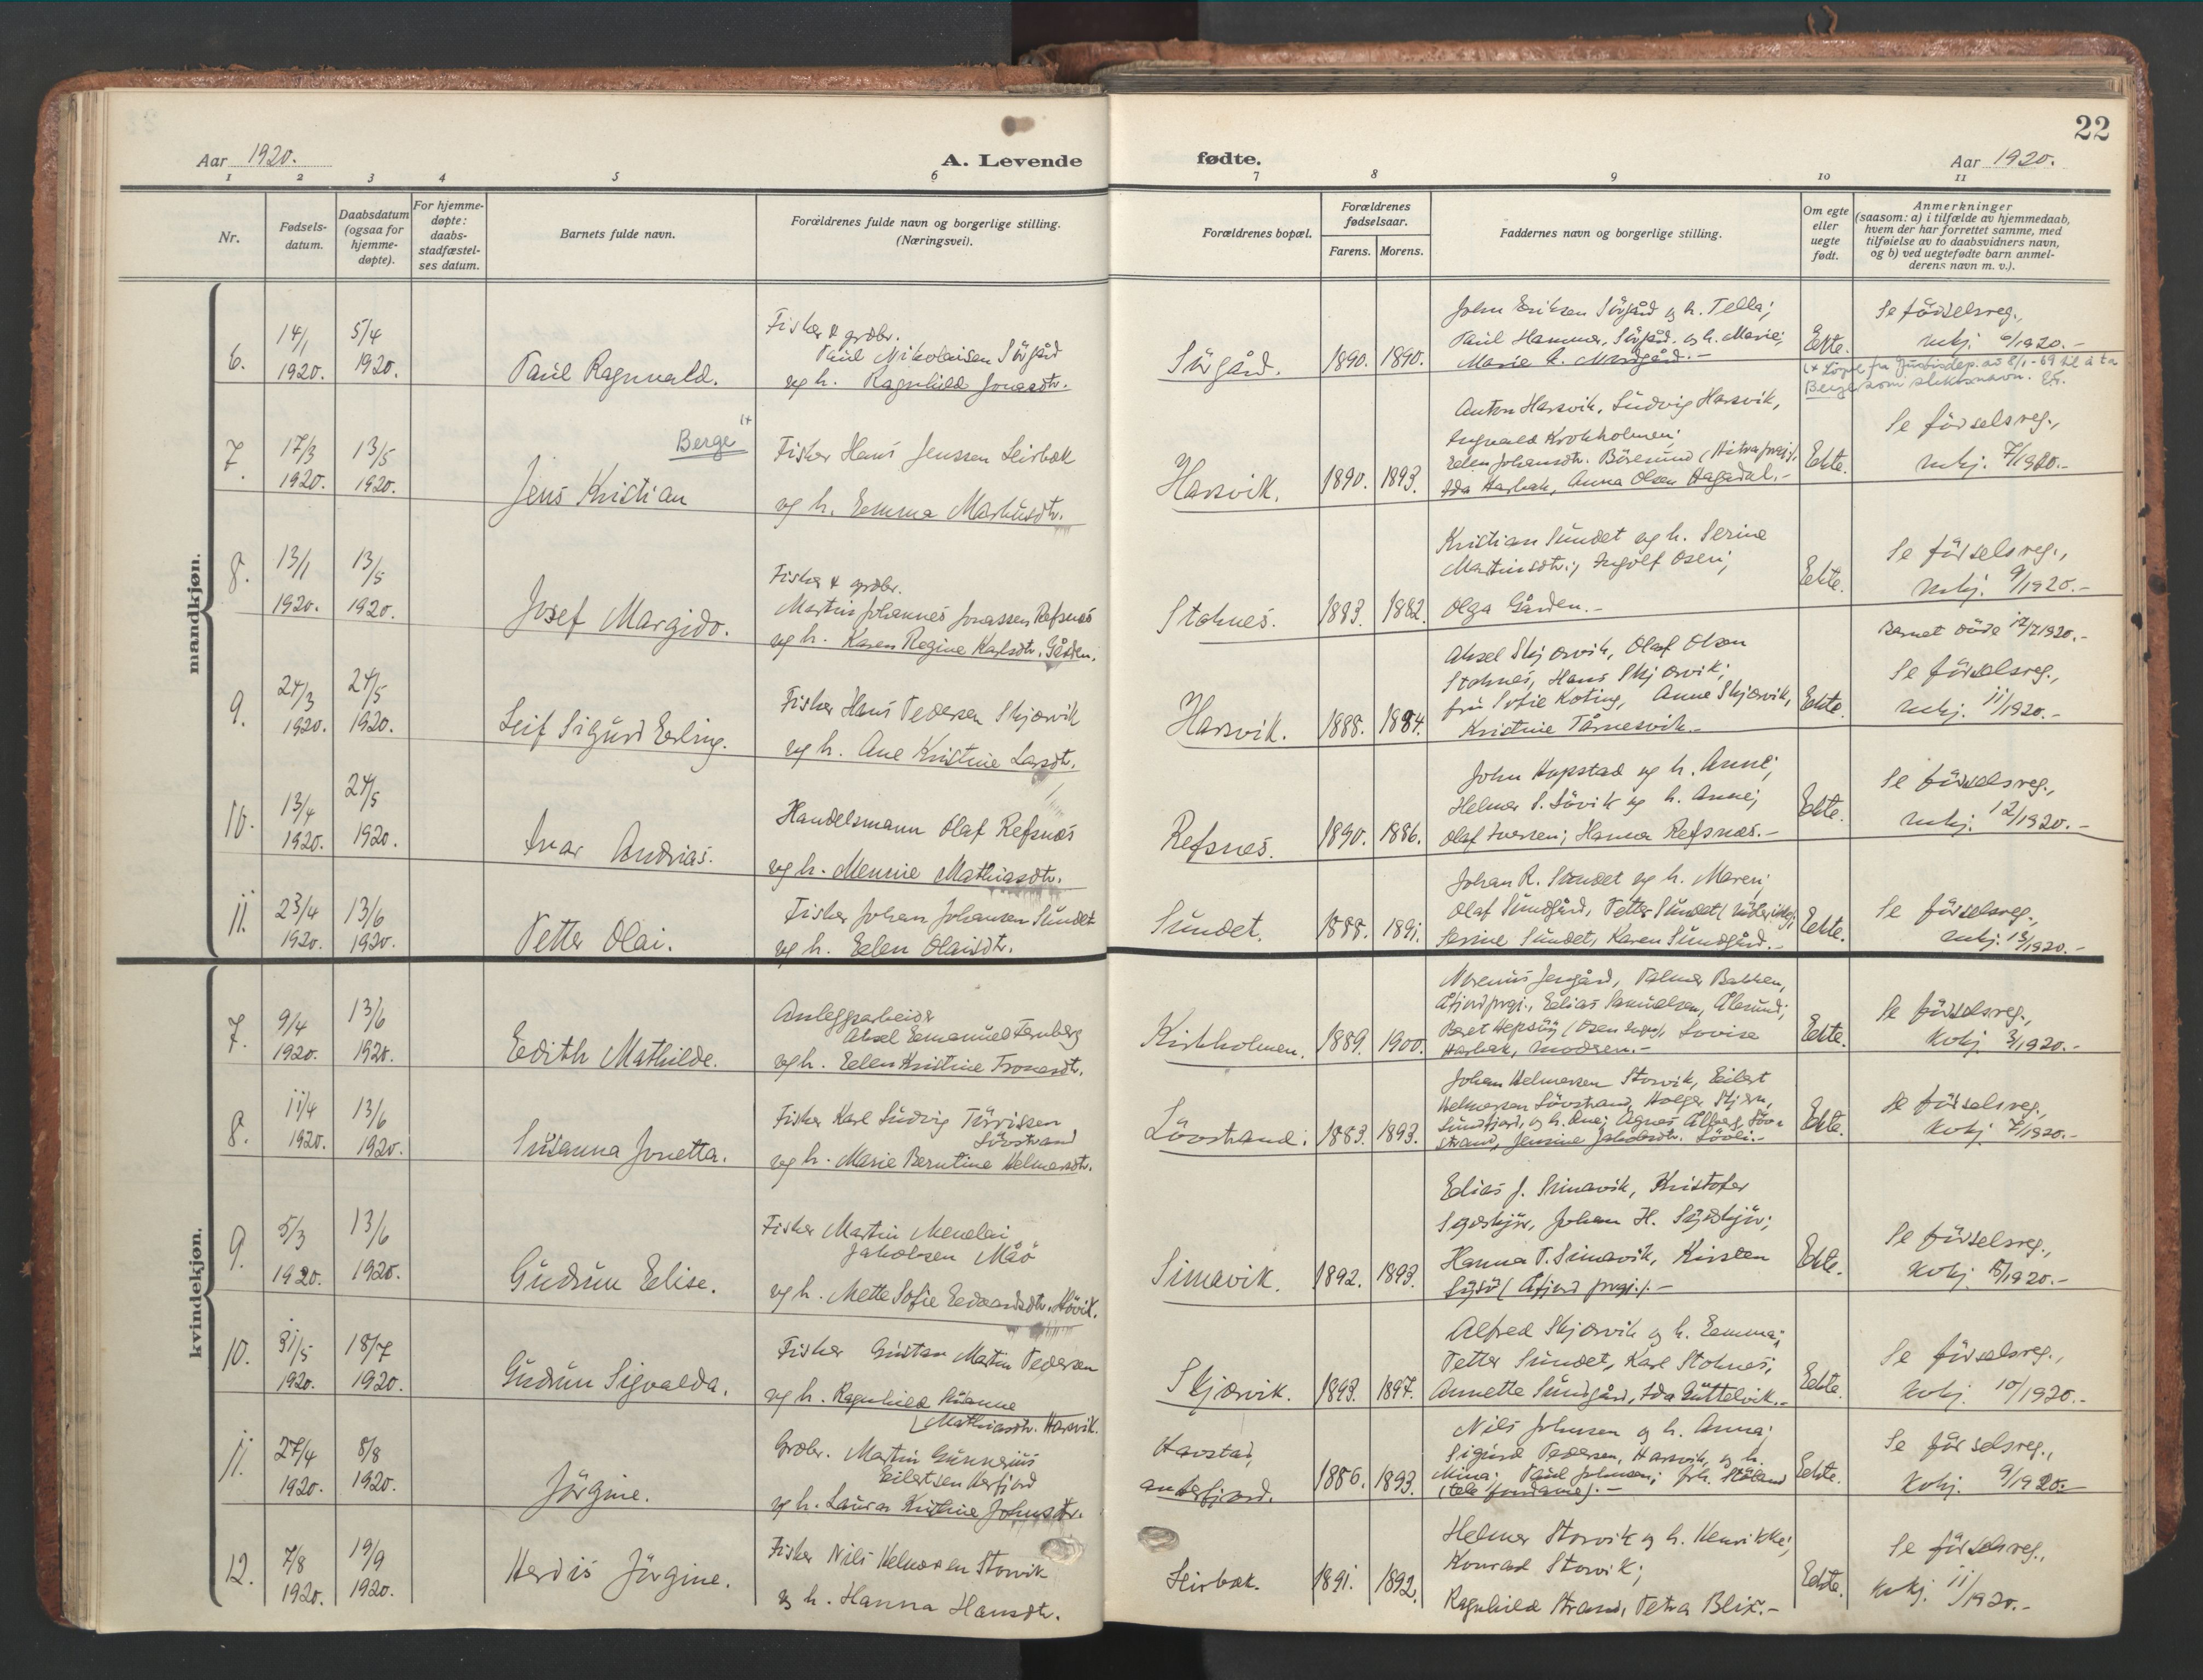 22
Aar 1920.
A. Levende
fødte.
Aar 1920.
1 2 3 4 5 6 7 8 9 10 11
Nr.
Fødsels-
datum.
Daabsdatum
(ogsaa for
hjemme-
døpte).
For hjemme-
døpte:
daabs-
stadfæstel-
ses datum.
Barnets fulde navn.
Forældrenes fulde navn og borgerlige stilling.
(Næringsvei).
Forældrenes bopæl.
Forældrenes
fødselsaar.
Farens. Morens.
Faddernes navn og borgerlige stilling.
Om egte
eller
uegte
født.
Anmerkninger
(saasom: a) i tilfælde av hjemmedaab,
hvem der har forrettet samme, med
tilføielse av to daabsvidners navn,
og b) ved uegtefødte barn anmel-
derens navn m. v.).
mandkjøn.
6.
14/1
1920.
5/4
1920.
Paul Ragnvald.
Fisker & grdbr.
Paul Nikolaisen Sörgård
og h. Ragnhild Jonasdtr.
Sörgård.
1890. 1890.
John Eriksen Sörgård og h. Tella;
Paul Hammer, Sörgård og h. Marie;
Marie A. Mardgård.-
Ekte.
Se födselsreg.,
mkj. 6/1920.-
(+ Löyve fra Justisdep. av 8/1-69 til å ta
Berge som slektsnavn.
7.
17/3
1920.
13/5
1920.
Berge (+
Jens Kristian
Fisker Hans Jenssen Leirbak
og h. Emma Markusdtr.
Harsvik.
1890. 1893.
Anton Harsvik, Ludvig Harsvik,
Ingvald Krokholmen;
Elen Johansdtr. Böresund (Hitra prgj.),
Ida Harbak, Anna Olsen Hagadal.-
Ekte.
Se födselsreg.,
mkj. 7/1920.-
8.
13/1
1920.
13/5
1920.
Josef Margido.
Fisker & grdbr.
Martin Johannes Jonassen Refsnes
og h. Karen Regine Karlsdtr. Gården.
Stoknes.
1883. 1882.
Kristian Sundet og h. Serine
Martinsdtr.; Ingolf Osen;
Olga Gården.-
Ekte.
Se födselsreg.,
mkj. 9/1920.-
Barnet döde 12/7 1920.-
9.
24/3
1920.
24/5
1920.
Leif Sigurd Erling.
Fisker Hans Pedersen Skjærvik
og h. Ane Kristine Larsdtr.
Harsvik.
1888. 1884.
Aksel Skjærvik, Olaf Olsen
Stoknes, Hans Skjærvik;
fru Sofie Koting, Anne Skjærvik,
Kristine Tårnesvik.-
Ekte.
Se födselsreg.,
mkj. 11/1920.-
10.
13/4
1920.
24/5
1920.
Ivar Andrias.
Handelsmann Olaf Refsnes
og h. Mennie Mathiasdtr.
Refsnes.
1890. 1886.
John Hopstad og h. Anne;
Helmer P. Sövik og h. Anne;
Olaf Iversen; Hanna Refsnes.-
Ekte.
Se födselsreg.,
mkj. 12/1920.-
11.
23/4
1920.
13/6
1920.
Petter Olai.
Fisker Johan Johansen Sundet
og h. Elen Olaisdtr.
Sundet.
1888. 1891.
Johan R. Sundet og h. Maren;
Olaf Sundgård, Petter Sundet
Serine Sundet, Karen Sundgård.-
Ekte.
Se födselsreg.,
mkj. 13/1920.-
kvindekjøn.
7.
9/4
1920.
13/6
1920.
Edith Mathilde.
Anleggsarbeider
Aksel Emanuel Fernberg
og h. Elen Kristine Tronesdtr.
Kirkholmen.
1889. 1900.
Palmer Bakken,
Åfjord prgj., Elias Samuelsen, Ålesund;
Beret Hepsöy (Osen sogn), Lovise
Harbak, modren.-
Ekte.
Se födselsreg.,
kvkj. 3/1920.-
8.
11/4
1920.
13/6
1920.
Susanna Jonetta.
Fisker Karl Ludvig Törrissen
Lövstrand
og h. Marie Berntine Helmersdtr.
Lövstrand.
1883. 1893.
Johan Helmersen Storvik, Eilert
Helmersen Lövstrand, Holger Stjern,
Sundfjord, og h. Ane; Agnes Ålberg Löv-
strand, Jensine Jakobsdtr. Lövli.-
Ekte.
Se födselsreg.,
kvkj. 7/1920.-
9.
5/3
1920.
13/6
1920.
Gudrun Elise.
Fisker Martin Mendlai
Jakobsen Måö
og h. Mette Sofie Edvardsdtr. Hövik.
Simavik.
1892. 1893.
Edias J. Simavik, Kristofer
Sydskjör, Johan H. Sydskjör;
Hanna P. Simavik, Kirsten
Lysö (Åfjord prgj.).-
Ekte.
Se födselsreg.,
kvkj. /1920.-
10.
31/5
1920.
18/7
1920.
Gudrun Sigvalda.
Fisker Gustav Martin Pedersen
og h. Ragnhild Susanne
Mathiasdtr. Harsvik.
Skjærvik.
1893. 1897.
Alfred Skjærvik og h. Emma;
Petter Sundet, Karl Stoknes;
Annette Sundgård, Ida Guttelvik.-
Ekte.
Se födselsreg.,
kvkj. 10/1920.-
11.
27/4
1920.
8/8
1920.
Jörgine.
Grdbr. Martin Gunnerius
Eilertsen Herfjord
og h. Laura Kristine Johnsdtr.
Havstad,
1886. 1893.
Nils Johnsen og h. Anna;
Sigurd Pedersen, Harsvik, og h.
Mina; Paul Johnsen; frk. Stöland
(telefondame).-
Ekte.
Se födselsreg.,
kvkj. 9/1920.-
12.
7/8
1920.
19/9
1920.
Herdis Jörgine.
Fisker Nils Helmersen Storvik
og h. Hanna Hansdtr.
Leirbak.
1891. 1892.
Helmer Storvik og h. Henrikke;
Konrad Storvik;
Ragnhild Strand, Petra Blix.-
Ekte.
Se födselsreg.,
kvkj. 11/1920.-